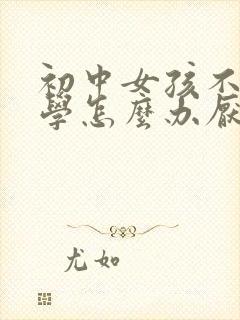 初中女孩不
學怎麼办厭
尤如